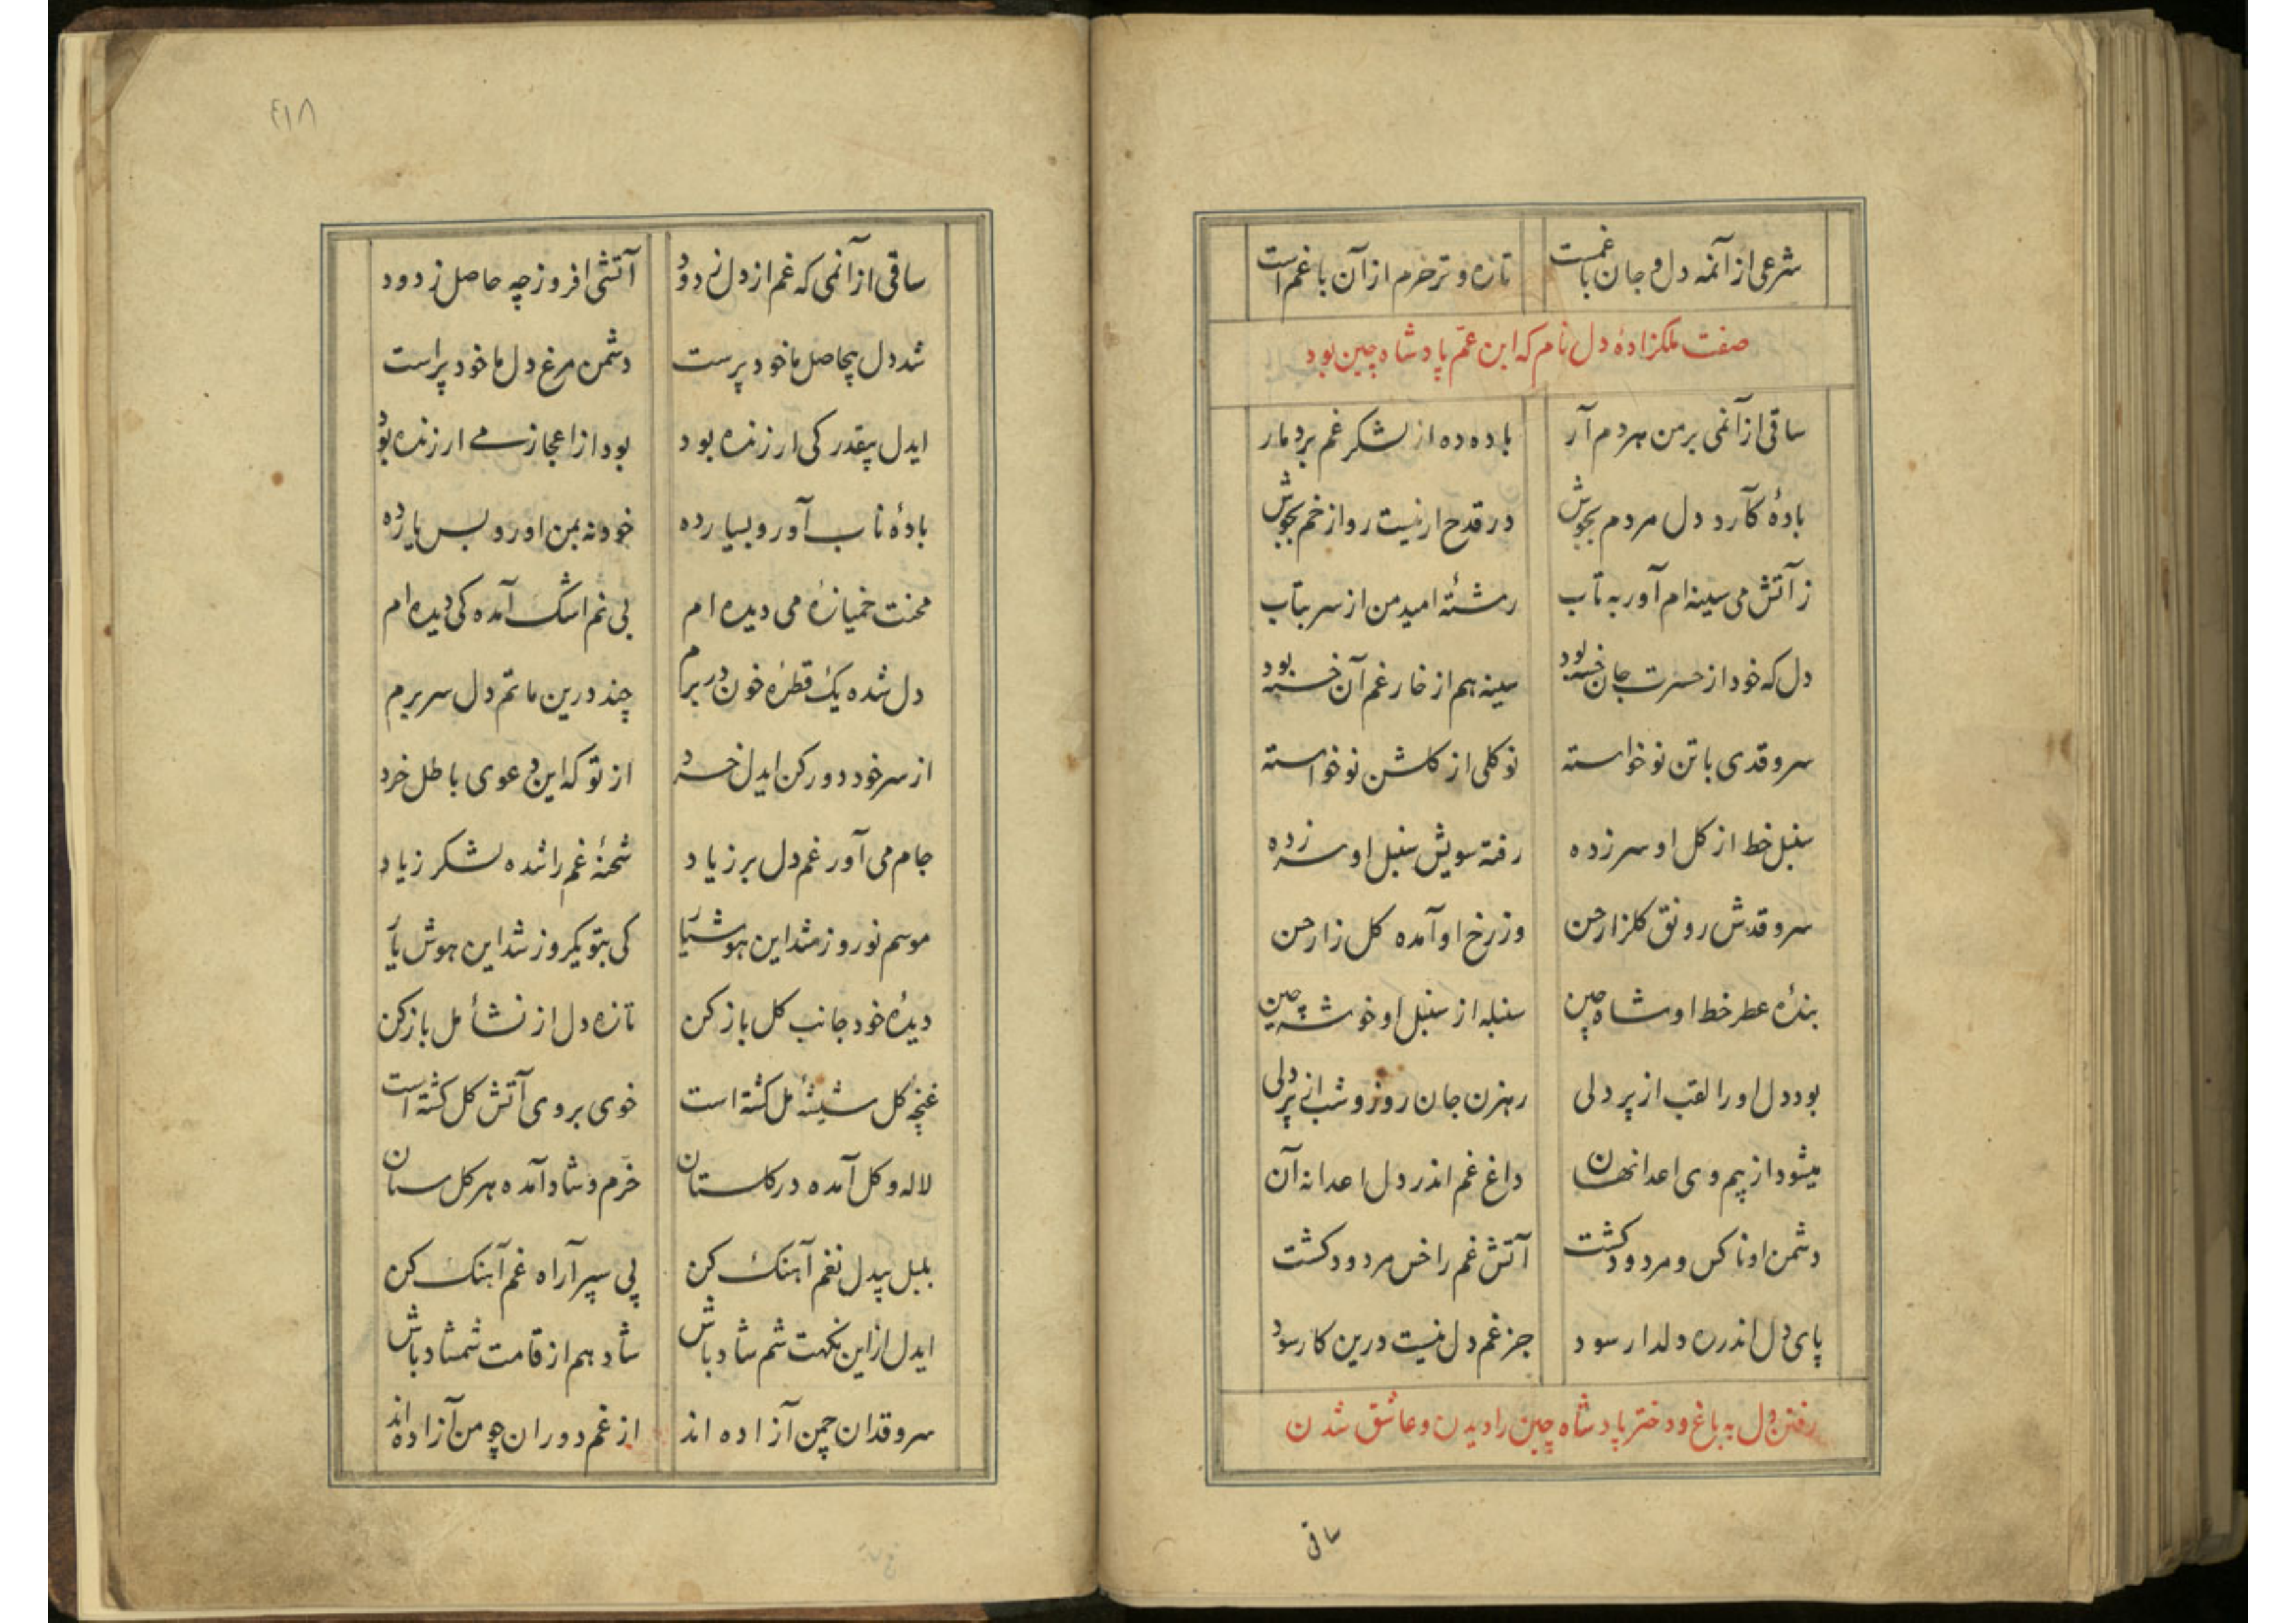 شرعی از آنمه دل و جان با غمست تازه و تر خرم از آن باغم است
صفت ملکزادهٔ دل نام که ابن عم پادشاه چین بود
ساقی از آنمی بر من هر دم آر باده ده از لشکر غم بر دمار
بادهٔ کآرد دل مردم بجوش در قدح ار نیست رو از خم بجوش
ز آتش می سینه ام آور به تاب رشتهٔ امید من از سر بتاب
دل که خود از حسرت جان خسته بود سینه هم از خار غم آن خسته بود
سرو قدی با تن نو خواسته نو کلی از کلشن نو خواسته
سنبل خط از کل او سر زده رفته سویش سنبل او سر زده
سرو قدش رونق کلزار حسن وز رخ او آمده کل زار حسن
بندهٔ عطر خط او شاه چین سنبله از سنبل او خوشه چین
بود دل او را لقب از پر دلی رهزن جان روز و شب از پر دلی
میشود از بیم وی اعدا نهان داغ غم اندر دل اعدا نه آن
دشمن او ناکس و مردود کشت آتش غم را خس مردود کشت
پای دل اندر ره دلدار سود جز غم دل نیست درین کار سود
رفتن دل به باغ و دختر پادشاه چین را دیدن و عاشق شدن
ساقی
۸۱۹
ساقی از آنمی که غم از دل زدود آتشی افروز چه حاصل ز دود
شد دل بیحاصل ما خود پرست دشمن مرغ دل ما خود پر است
ایدل بیقدر کی ارزنده بود بود از اعجاز می ار زنده بود
بادهٔ ناب آور و بسیار ده خود نه بمن اور و بس یار ده
محنت خمیازهٔ می دیده ام بی نم اشک آمده کی دیده ام
دل شده یک قطرهٔ خون در برم چند درین ماتم دل سر برم
از سر خود دور کن ایدل خرد از تو که این دعوی باطل خرد
جام می آور غم دل بر ز یاد شحنهٔ غم را شده لشکر زیاد
موسم نوروز شد این هوشیار کی بتو یکروز شد این هوش یار
دیدهٔ خود جانب کل باز کن تازه دل از نشأ مل باز کن
غنچه کل شیشهٔ مل کشته است خوی بروی آتش کل کشته است
لاله و کل آمده در کلستان خرم و شاد آمده هر کل ستان
بلبل بیدل نغم آهنک کن پی سپر آر راه غم آهنک کن
ایدل از این نکهت شم شاد باش شاد هم از قامت شمشاد باش
سرو قدان چمن آزاده اند از غم دوران چو من آزاده اند